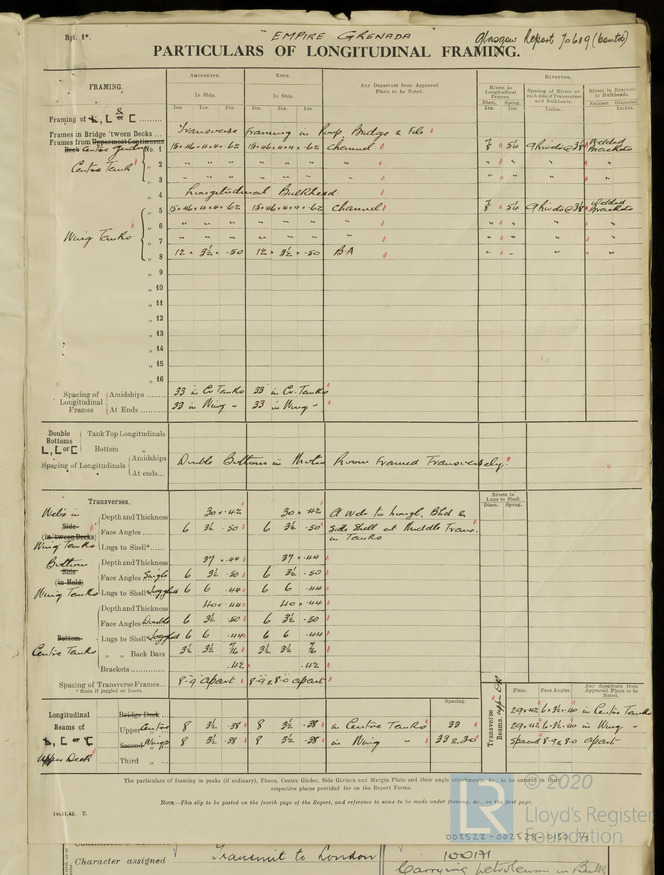 Rpt. 1*.
EMPIRE GRENADA
Glasgow Report 70689 (contd)
PARTICULARS OF LONGITUDINAL FRAMING.
FRAMING.
AMIDSHIPS.
ENDS.
Any Departure from Approved Plans to be Noted.
RIVETING.
In Ship.
In Ship.
Rivets in Longitudinal Frames.
Spacing of Rivets on each side of Transverses and Bulkheads.
Rivets in Brackets to Bulkheads.
Ins. Ins. Ins. Ins. Ins. Ins.
Diam. Spcng. Inches. Number. Diameter
Framing of L, L or C
Frames in Bridge 'tween Decks ...
Transverse Framing in Poop, Bridge & F'cle
Frames from Uppermost Continuous
Deck Centre Girder No. 1 15 × 4 × 4 × .62 15 × 4 × 4 × .62 Channel 7/8 5¼ 9 rivets @ 3⅛ Welded Brackets
Centre Tank
„ 2 " " " " "
„ 3 " " " " "
„ 4 Longitudinal Bulkhead
„ 5 15 × 4 × 4 × .62 15 × 4 × 4 × .62 Channel 7/8 5¼ 9 rivets @ 3⅛ Welded Brackets
Wing Tanks
„ 6 " " " " "
„ 7 " " " " "
„ 8 12 × 3½ × .50 12 × 3½ × .50 B.A " " " "
„ 9
„ 10
„ 11
„ 12
„ 13
„ 14
„ 15
„ 16
Spacing of Longitudinal Frames
Amidships ........ 33 in Cr. Tanks 33 in Cr. Tanks
At Ends ........ 33 in Wing " 33 in Wing "
Double Bottoms L, L or C
Tank Top Longitudinals
Bottom „
Spacing of Longitudinals
Amidships
At ends...
Double Bottom in Motor Room Framed Transversely.
Transverses.
Rivets in Lugs to Shell.
Diam. Spcng.
Webs in
Side
(in 'tween Decks)
Wing Tanks
Depth and Thickness 30 × .42 30 × .42 A web to longl. Bhd &
Face Angles ... 6 3½ .50 6 3½ .50 Side Shell at Middle Trans.
Lugs to Shell* ... in Tanks
Bottom
Side
(in Hold)
Wing Tanks
Depth and Thickness 37 × .44 37 × .44
Face Angles Single 6 3½ .50 6 3½ .50
Lugs to Shell* Joggled 6 6 .44 6 6 .44
Bottom
Centre Tanks
Depth and Thickness 40 × .44 40 × .44
Face Angles Double 6 3½ .50 6 3½ .50
Lugs to Shell* Joggled 6 6 .44 6 6 .44
„ „ Back Bars 3½ 3½ 3½ 3½
Brackets ........ .42 .42
Spacing of Transverse Frames... 8-9 apart 8-9 & 8-0 apart
* State if joggled or liners.
Transverse Beams. Upper Dk
Plate. Face Angles. Any departure from Approved Plans to be Noted.
29 × .42 6 × 3½ × .40 in Centre Tanks
29 × .42 6 × 3½ × .40 in Wing "
Spaced 8-9 & 8-0 apart
Longitudinal Beams of L, L or C
Upper Deck
Spacing.
Bridge Deck ...
Upper Centre 8 3½ .38 8 3½ .38 in Centre Tanks 33
Second Wings 8 3½ .38 8 3½ .38 in Wing " 33 & 30
Third „
The particulars of framing in peaks (if ordinary), Floors, Centre Girder, Side Girders and Margin Plate and their angle attachments, &c., to be entered in their
respective places provided for on the Report Forms.
NOTE.—This slip to be pasted on the fourth page of the Report, and reference to same to be made under framing, &c., on the first page.
1m,11,42. T.
© 2020
LR
Lloyd's Register
Foundation
002522-002528-0150
Character assigned
Transmit to London
100A1
Carrying petroleum in Bulk